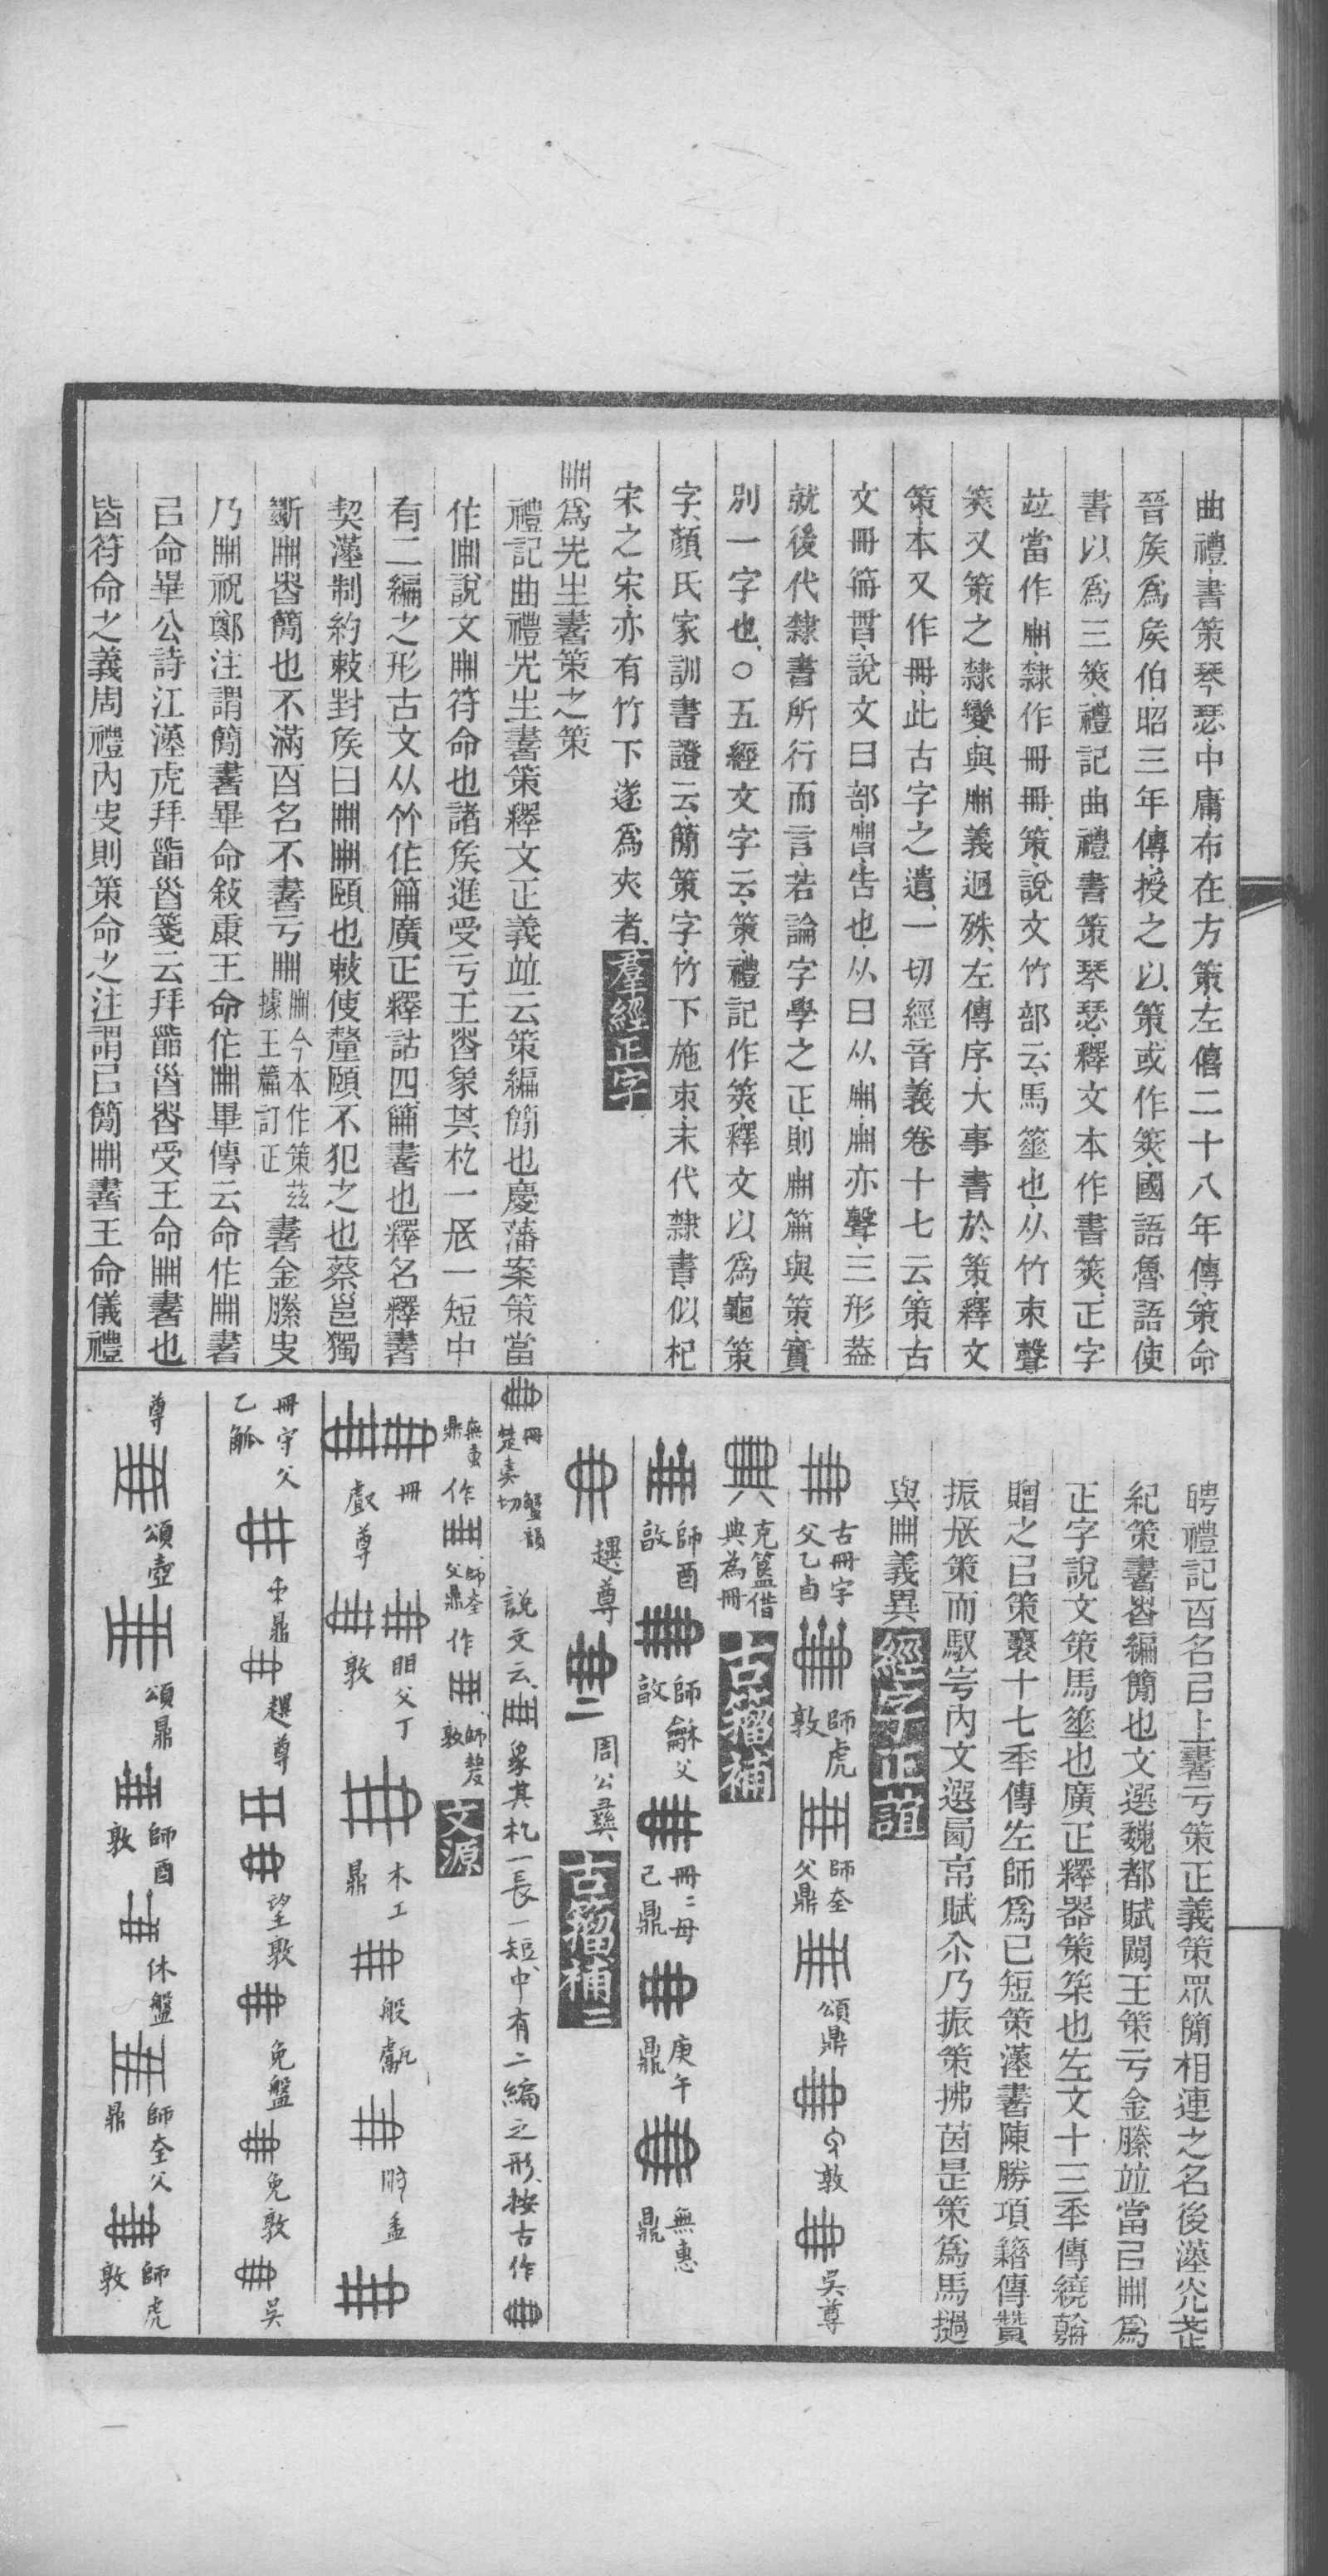 曲禮書策琴瑟中庸布在方策左僖二十八年傳策命
晉矦爲矦伯昭三年傳授之以策或作筴國語魯語使
書以爲三筴禮記曲禮書策琴瑟釋文本作書筴正字
竝當作𠕋隸作冊冊策說文竹部云馬箠也从竹朿聲
筴又策之隸變與𠕋義迥殊左傳序大事書於策釋文
策本又作冊此古字之遺一切經音義卷十七云策古
文冊笧䇲說文曰部曶告也从曰从𠕋𠕋亦聲三形葢
就後代隸書所行而言若論字學之正則𠕋䈂與策實
別一字也○五經文字云策禮記作筴釋文以爲龜策
字顏氏家訓書證云簡策字竹下施朿末代隸書似杞
宋之宋亦有竹下遂爲夾者羣經正字
𠕋爲先生書策之策
禮記曲禮先生書策釋文正義竝云策編簡也慶藩案策當
作𠕋說文𠕋符命也諸矦進受亏王者象其札一長一短中
有二編之形古文从竹作䈂廣疋釋詁四䈂書也釋名釋書
契漢制約敕封矦曰𠕋𠕋賾也敕使整賾不犯之也蔡邕獨
斷𠕋者簡也不滿百名不書亏𠕋𠕋今本作策茲據王蕭訂正書金縢史
乃𠕋祝鄭注謂簡書畢命敘康王命作𠕋畢傳云命作𠕋書
㠯命畢公詩江漢虎拜𩒨首箋云拜𩒨首者受王命𠕋書也
皆符命之義周禮內史則策命之注謂㠯簡𠕋書王命儀禮
聘禮記百名㠯上書亏策正義策眾簡相連之名後漢光武
紀策書者編簡也文選魏都賦闚王策亏金縢竝當㠯𠕋爲
正字說文策馬箠也廣疋釋器策筞也左文十三年傳繞朝
贈之㠯策襄十七年傳左師爲己短策漢書陳勝項籍傳贊
振長策而馭宇內文選鬳帝賦尒乃振策拂茵是策爲馬檛
與𠕋義異經字正誼
古冊字父乙卣 師虎敦 師奎父鼎 頌鼎 敦 吳尊
克簋借典為冊 古籀補
師酉𣪘 師龢父𣪘 冊冊母己鼎 庚午鼎 無惠鼎
趩尊 周公彝 古籀補二
冊楚責切 蟹韻 說文云象其札一長一短中有二編之形按古作
無叀鼎 作 師奎父鼎 作 師𠭯敦 文源
冊𢻻尊 䀠父丁敦 木工鼎 般甗 盂
冊守父乙觚 鼎 趩尊 望敦 免盤 免敦 吳
尊 頌壺 頌鼎 師酉敦 休盤 師奎父鼎 師虎敦